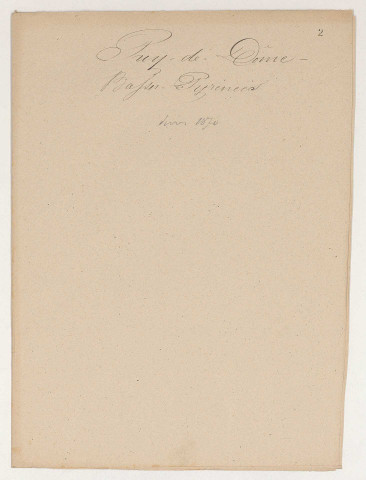 2
Puy-de-Dôme-
Basses-Pyrénées
1870